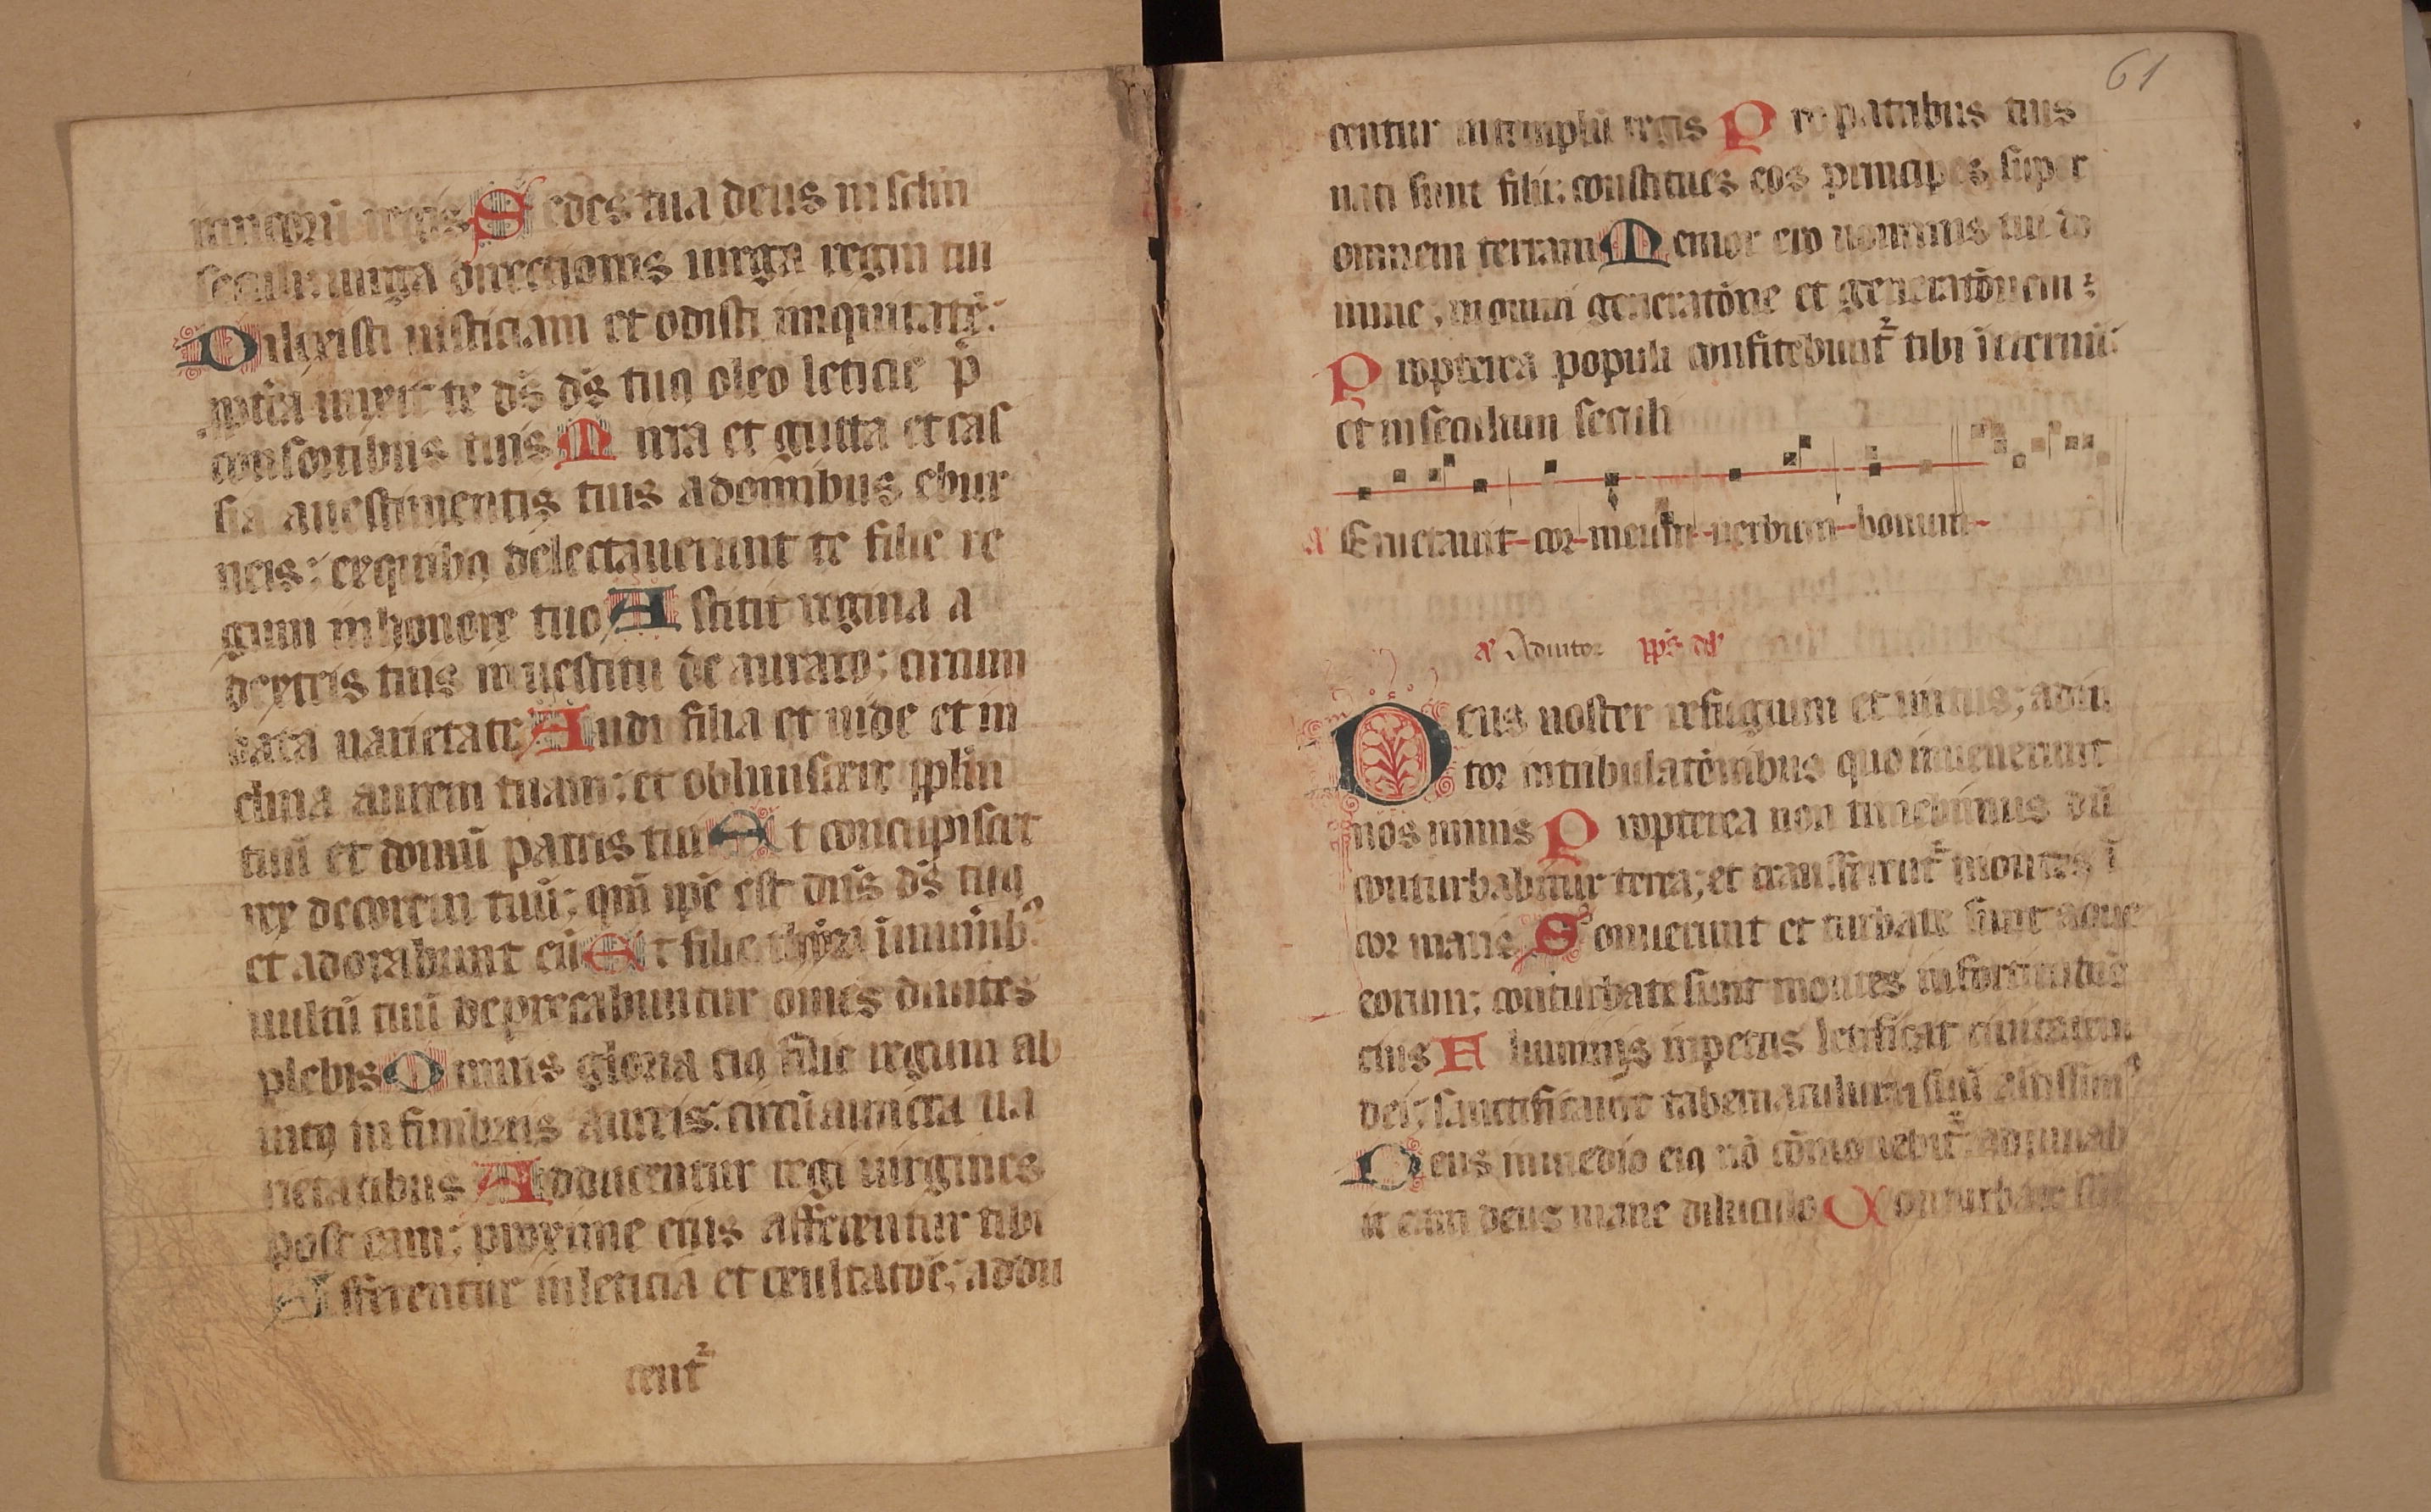 imicorū regis Sedes tua deus in sclm
seculi: uirga directionis uirga regni tui
Dilexisti iusticiam et odisti iniquitatē:
ꝓptēa unxit te ds̄ ds̄ tuꝰ oleo leticie p̄
consortibus tuis Mirra et gutta et cas
sia auestimentis tuis adomibus ebur
neis: exquibꝰ delectauerunt te filie re
gum inhonore tuo Astitit regina a
dextris tuis inuestitu de aurato: circum
data uarietate Audi filia et uide et in
clina aurem tuam: et obliuiscere pplm
tuū et domū patris tui Et concupiscet
rex decorem tuū: qm̄ ip̄e est dn̄s ds̄ tuꝰ
et adorabunt eū Et filie thyri ī munīb
uultū tuū deprecabuntur om̄es diuites
plebis Omnis gloria eiꝰ filie regum ab
intꝰ infimbreis aureis: circū amicta ua
rietatibus Adducentur regi uirgines
post eam: proxime eius afferentur tibi
Afferentur inleticia et exultatōe: addu
cent᷑
61
centur intemplū regis Pro patribus tuis
nati sunt filii: constitues eos principes super
omnem terram Memor ero nominis tui do
mine: inomni generatōne et generatōnem:
Propterea populi confitebunt᷑ tibi ī eternū:
et inseculum seculi
a Eructauit cor meum uerbum bonum
a Adiutor ps̄ dd
Deus noster refugium et uirtus: adiu
tor intribulatōnibus que inuenerunt
nos nimis Propterea non timebimus dū
conturbabitur terra: et transferent᷑ montes ī
cor maris Sonuerunt et turbate sunt aque
eorum: conturbate sunt montes infortitudīe
eius Fluminis inpetus letificat ciuitatem
dei: sanctificauit tabernaculum suū altissim
Deus inmedio eiꝰ nō cōmouebit᷑: adiuuab
it eam deus mane diluculo Conturbate sūt